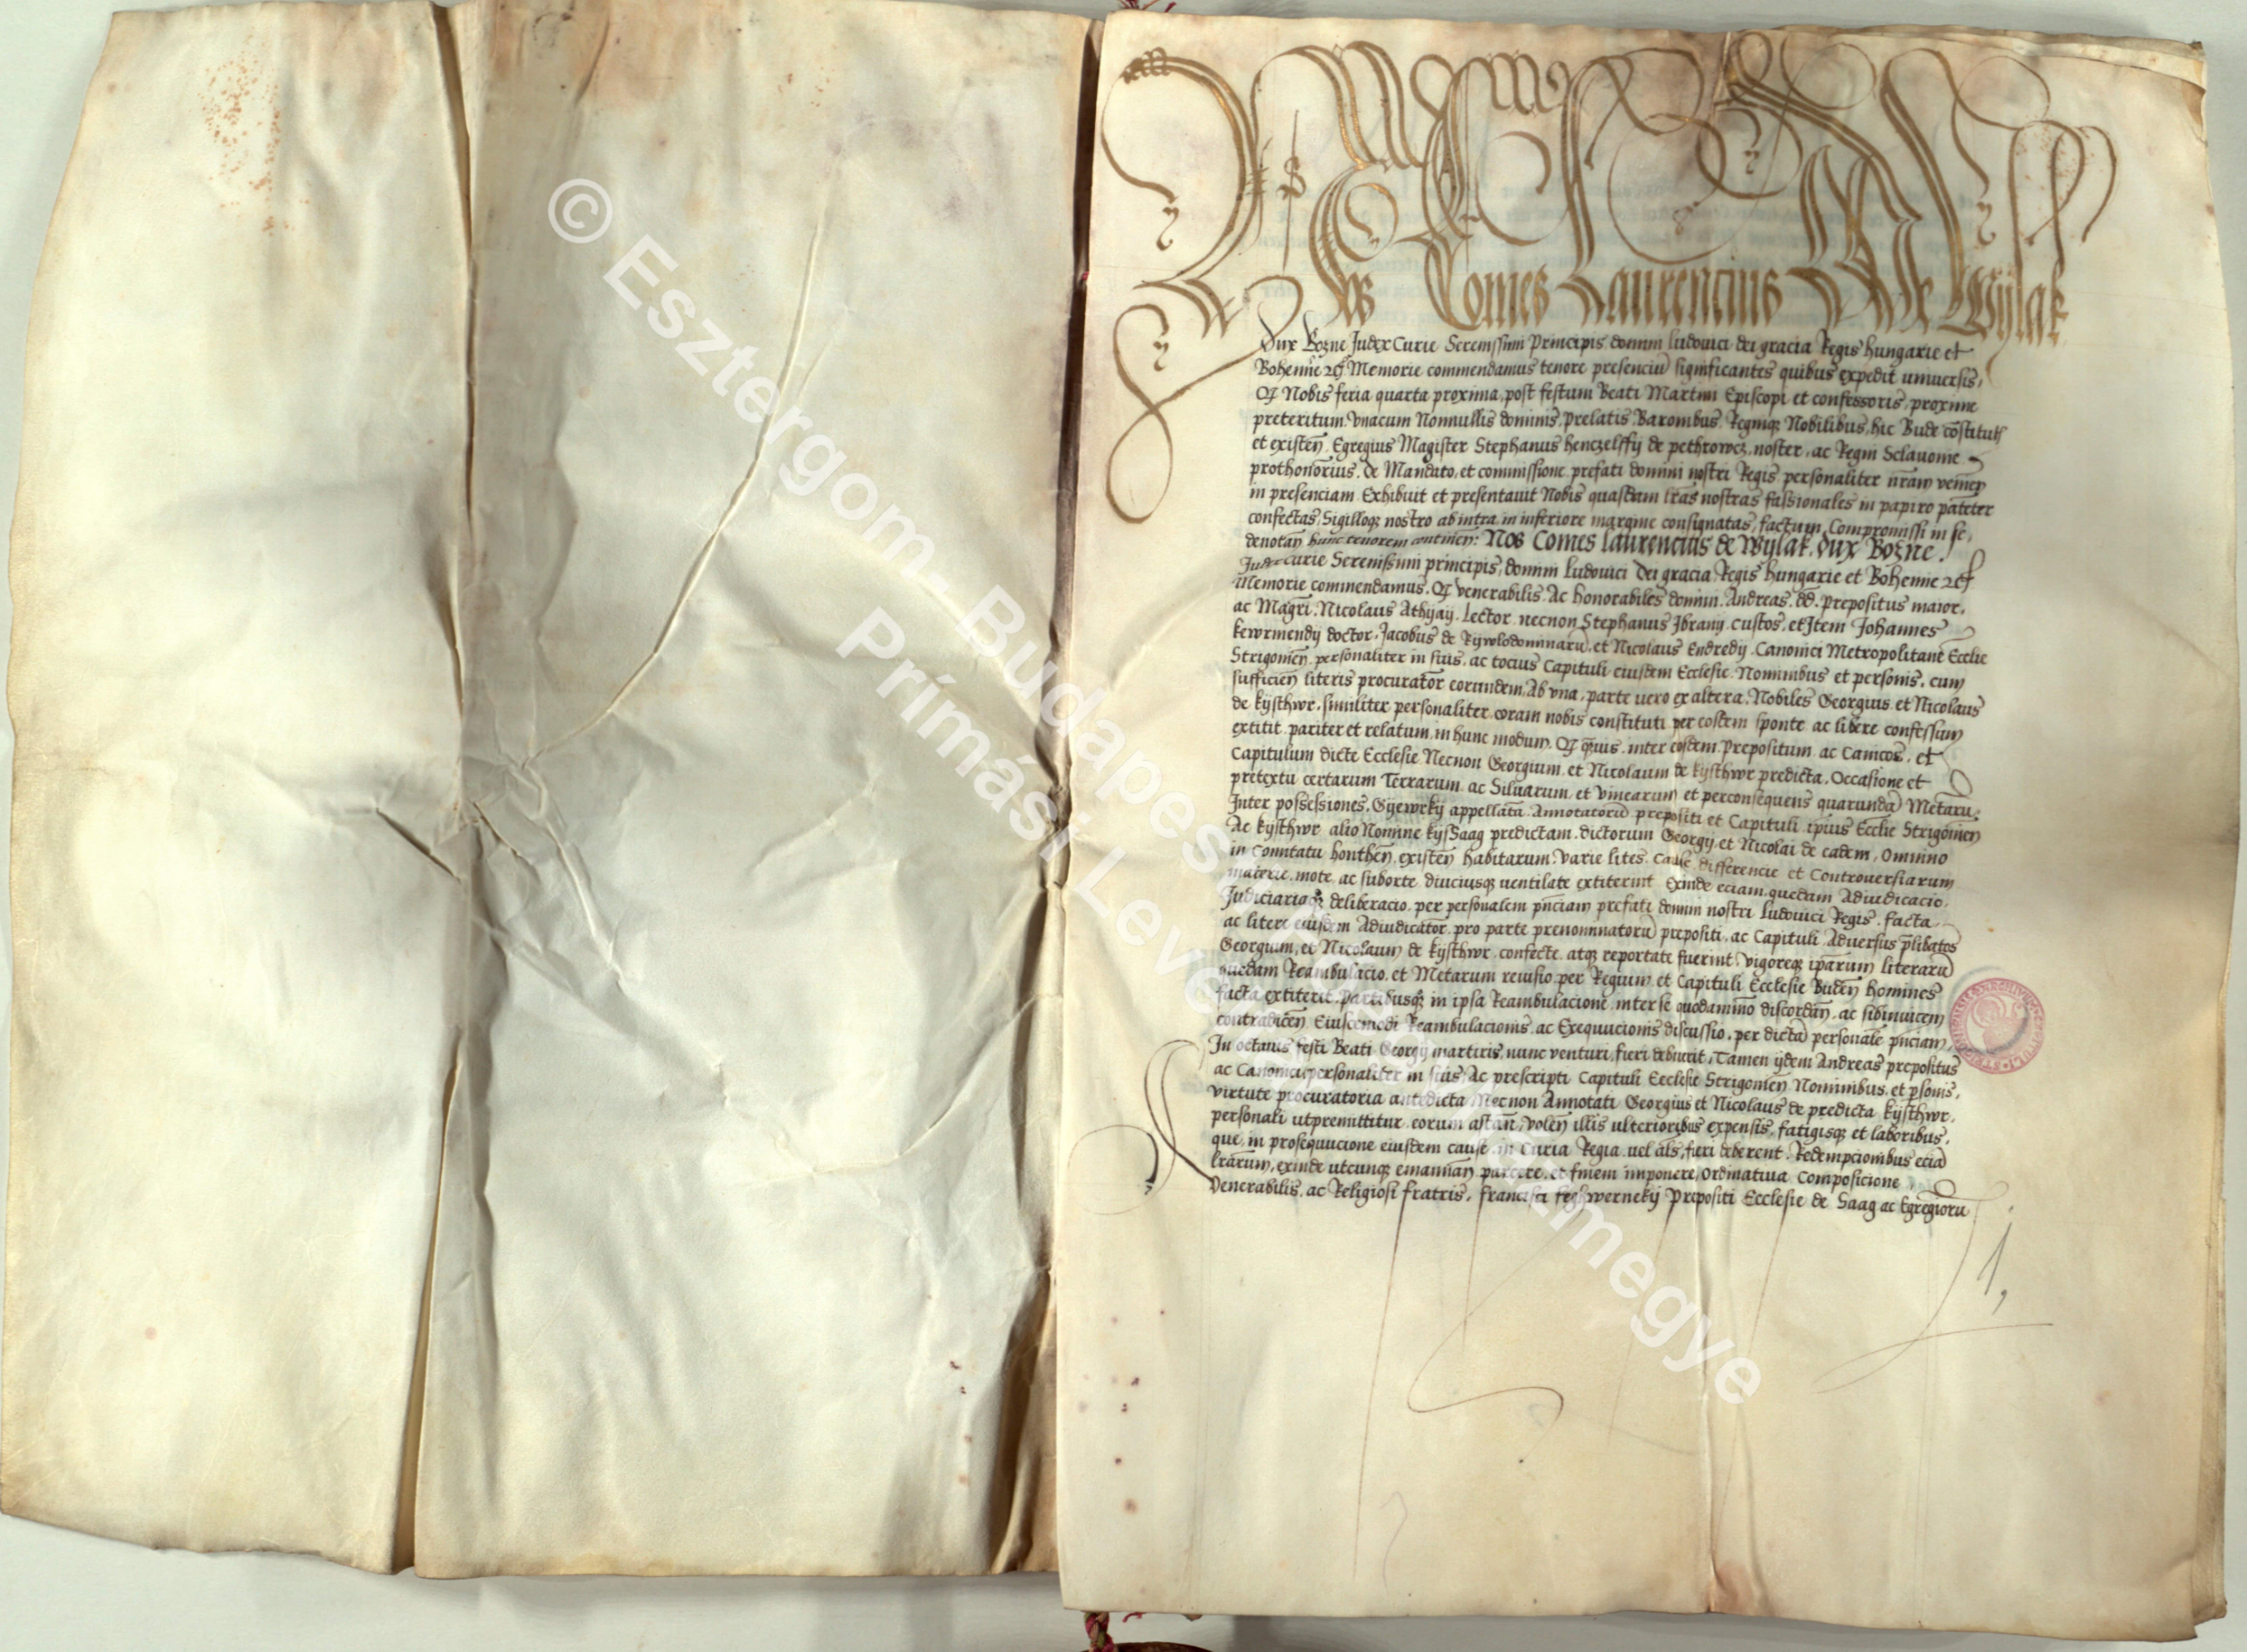 Nos Comes Laurencius De Wylak
Dux Bozne Judex Curie Serenissimi Principis domini ludouici dei gracia Regis hungarie et
Bohemie Memorie commendamus tenore presenciū significantes quibus expedit vniuersis,
Nobis feria quarta proxima post festum Beati Martini Episcopi et confessoris, proxime
preteritum vnacum Nonnullis dominis, prelatis, Baronibus, Regniqz Nobilibus, hic Bude cōstitutis
et existeñ Egregius Magister Stephanus henczelffy de pethrowcz, noster, ac Regni Sclauonie
prothonōrius, de Mandato, et commissione prefati domini nostri Regis personaliter nr̄am venieñ
in presenciam Exhibuit et presentauit Nobis quasdam lr̄as nostras fassionales in papiro patenter
confectas, Sigilloqz nostro ab intra in inferiore margine consignatas, factum Compromissi in se,
denotañ hunc tenorem contineñ: Nos Comes laurencius de Wylak, dux Bozne,
Judex curie Serenissimi principis, domini ludouici dei gracia Regis hungarie et Bohemie
Memorie commendamus, venerabilis Ac honorabiles domini Andreas dd. prepositus maior,
ac Magri. Nicolaus Athyay Lector necnon Stephanus Jbrany custos, et Jtem Johannes
kewrmendy doctor, Jacobus de et Nicolaus Endredy Canonici Metropolitane Ecclie
Strigonieñ personaliter in suis, ac tocius Capituli eiusdem Ecclesie Nominibus et personis, cum
sufficieñ literis procurator eorundem, Ab vna, parte vero ex altera, Nobiles Georgius et Nicolaus
de kysthwr, similiter personaliter coram nobis constituti per eosdem sponte ac libere confessum
extitit pariter et relatum in hunc modum, quis inter eosdem prepositum ac Canicos, et
Capitulum dicte Ecclesie Necnon Georgium et Nicolaum de kysthwr predicta, Occasione et
pretextu certarum Terrarum ac Siluarum et vinearum et perconsequens quarundā Metarū
Inter possessiones, Gyewrky appellatā Annotatorū prepositi et Capituli ipsius Ecclie Strigonieñ
Ac kysthwr alio Nomine kyssaag predictam dictorum Georgy et Nicolai de eadem, Omnino
in Comitatu hontheñ existeñ habitarum, varie lites, cause differencie et Controuersiarum
materie, mote ac suborte diuciusqz ventilate extiterint Exinde eciam quedam Adiudicacio,
Judiciariaqz deliberacio per personalem pñciam prefati domini nostri ludouici Regis, facta
ac litere eiusdem Adiudicator pro parte prenominatorū prepositi, ac Capituli Aduersus p̄libatos
Georgium, et Nicolaum de kysthwr confecte atqz reportate fuerint vigoreqz ip̄arum literarū
quedam Reambulacio, et Metarum reuisio per Regium et Capituli Ecclesie Budeñ homines
facta extiterit, partibusqz in ipsa Reambulacione inter se quodammō discordañ, ac sibinuicem
contradiceñ Eiuscemodi Reambulacionis, ac Exequucionis discussio, per dictā personale pñciam,
In octauis festi Beati Georgy martiris, nunc venturi, fieri debuerit, Tamen ydem Andreas prepositus
ac Canonici, personaliter in suis, Ac prescripti Capituli Ecclesie Strigonieñ Nominibus et psonis,
virtute procuratoria antedicta Necnon Annotati Georgius et Nicolaus de predicta kysthwr,
personali utpremittitur eorum astañ, voleñ illis ulterioribus expensis, fatigisqz et laboribus,
que in prosequucione eiusdem cause in Curia Regia vel als, fieri deberent, Redempcionibus eciā
lr̄arum, exinde utcunqz emanañ parcere, et finem imponere, Ordinatiua Composicione
venerabilis, ac Religiosi fratris, francisci feghwerneky prepositi Ecclesie de Saag ac Egregiorū
1,
© Esztergom-Budapesti
Prímási Levéltár